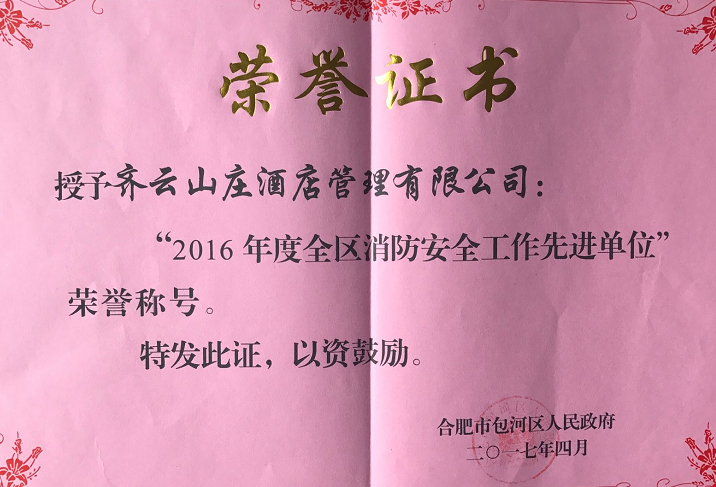 荣誉证书
授予齐云山庄酒店管理有限公司：
“2016年度全区消防安全工作先进单位”
荣誉称号。
特发此证，以资鼓励。
合肥市包河区人民政府
二〇一七年四月